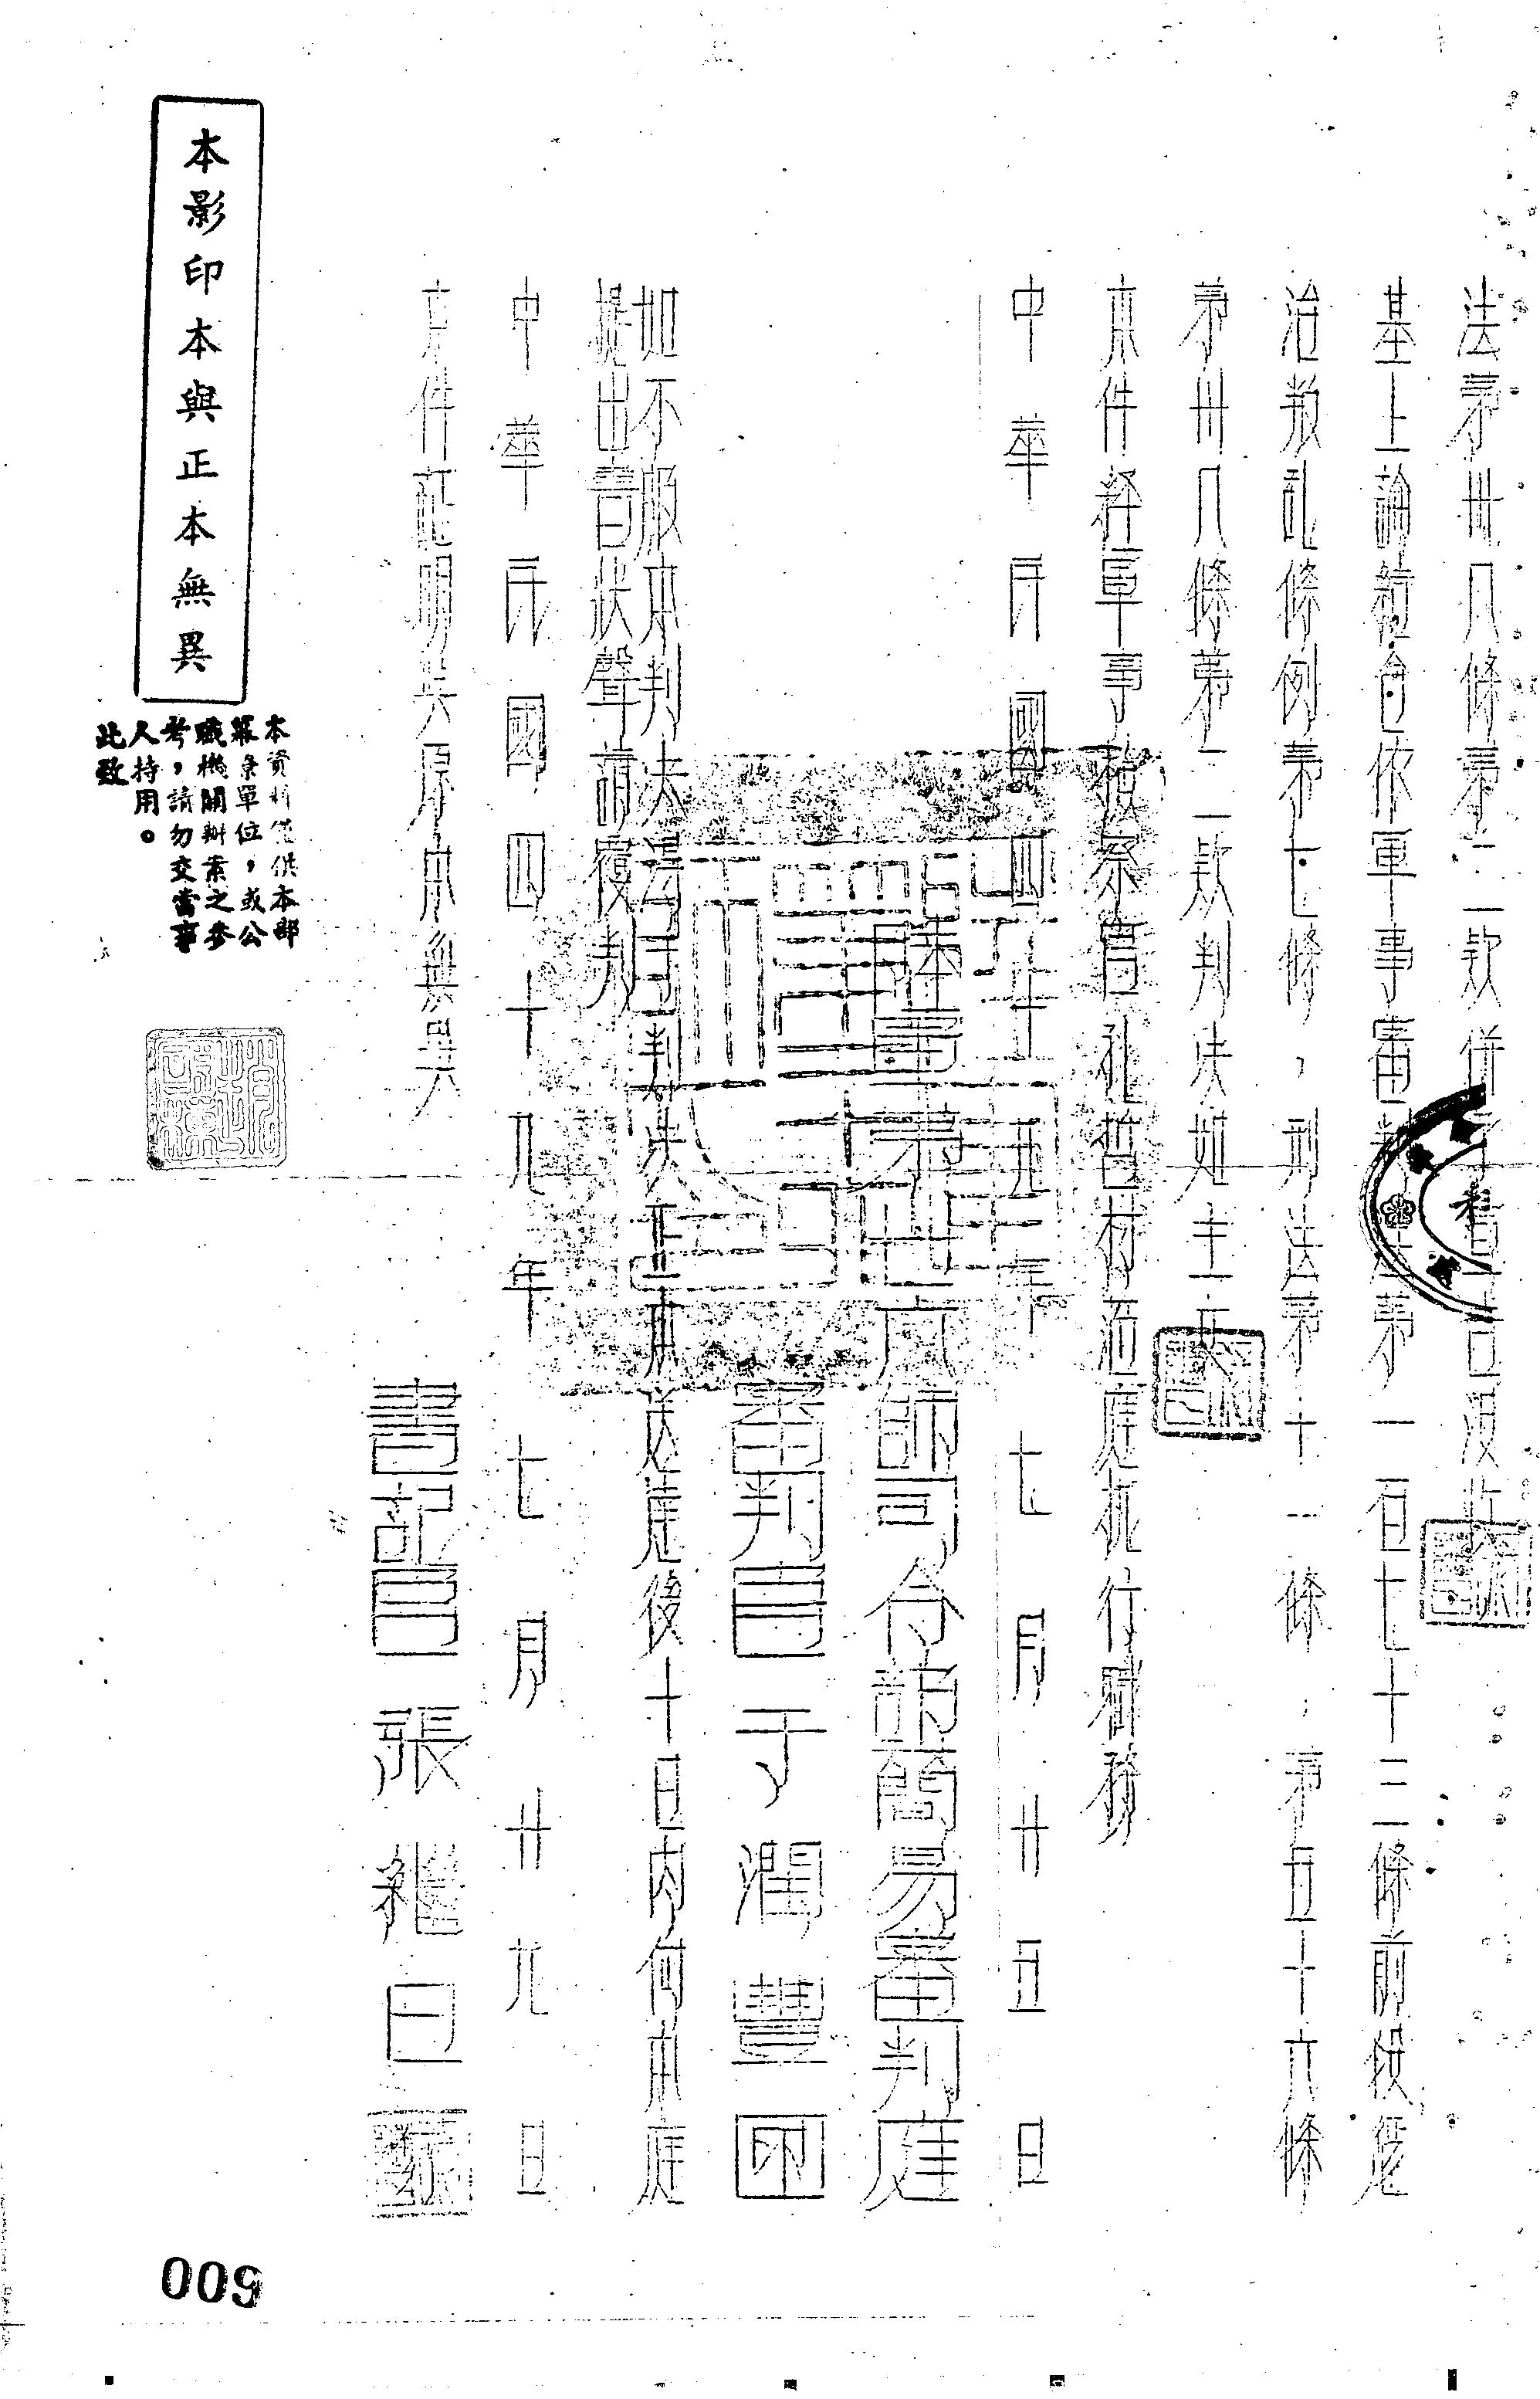 法第卅八條第二款併予宣告沒收
基上論結合依軍事審判法第一百七十三條前段懲
治叛亂條例第七條，刑法第十一條，第五十六條
第卅八條第二款判決如主文
本件經軍事檢察官孔哲材蒞庭執行職務
中華民國四十九年七月廿五日
陸軍第師司令部簡易審判庭
審判官于潤豐印
如不服本判決得自判決正本送達後十日內向本庭
提出書狀聲請覆判
中華民國四十九年七月廿九日
本件証明與原本無異
書記官張繼曰
本影印本與正本無異
本資料僅供本部
單位，或公
職機關辦案之參
考，請勿交當事
人持用。
此致
009